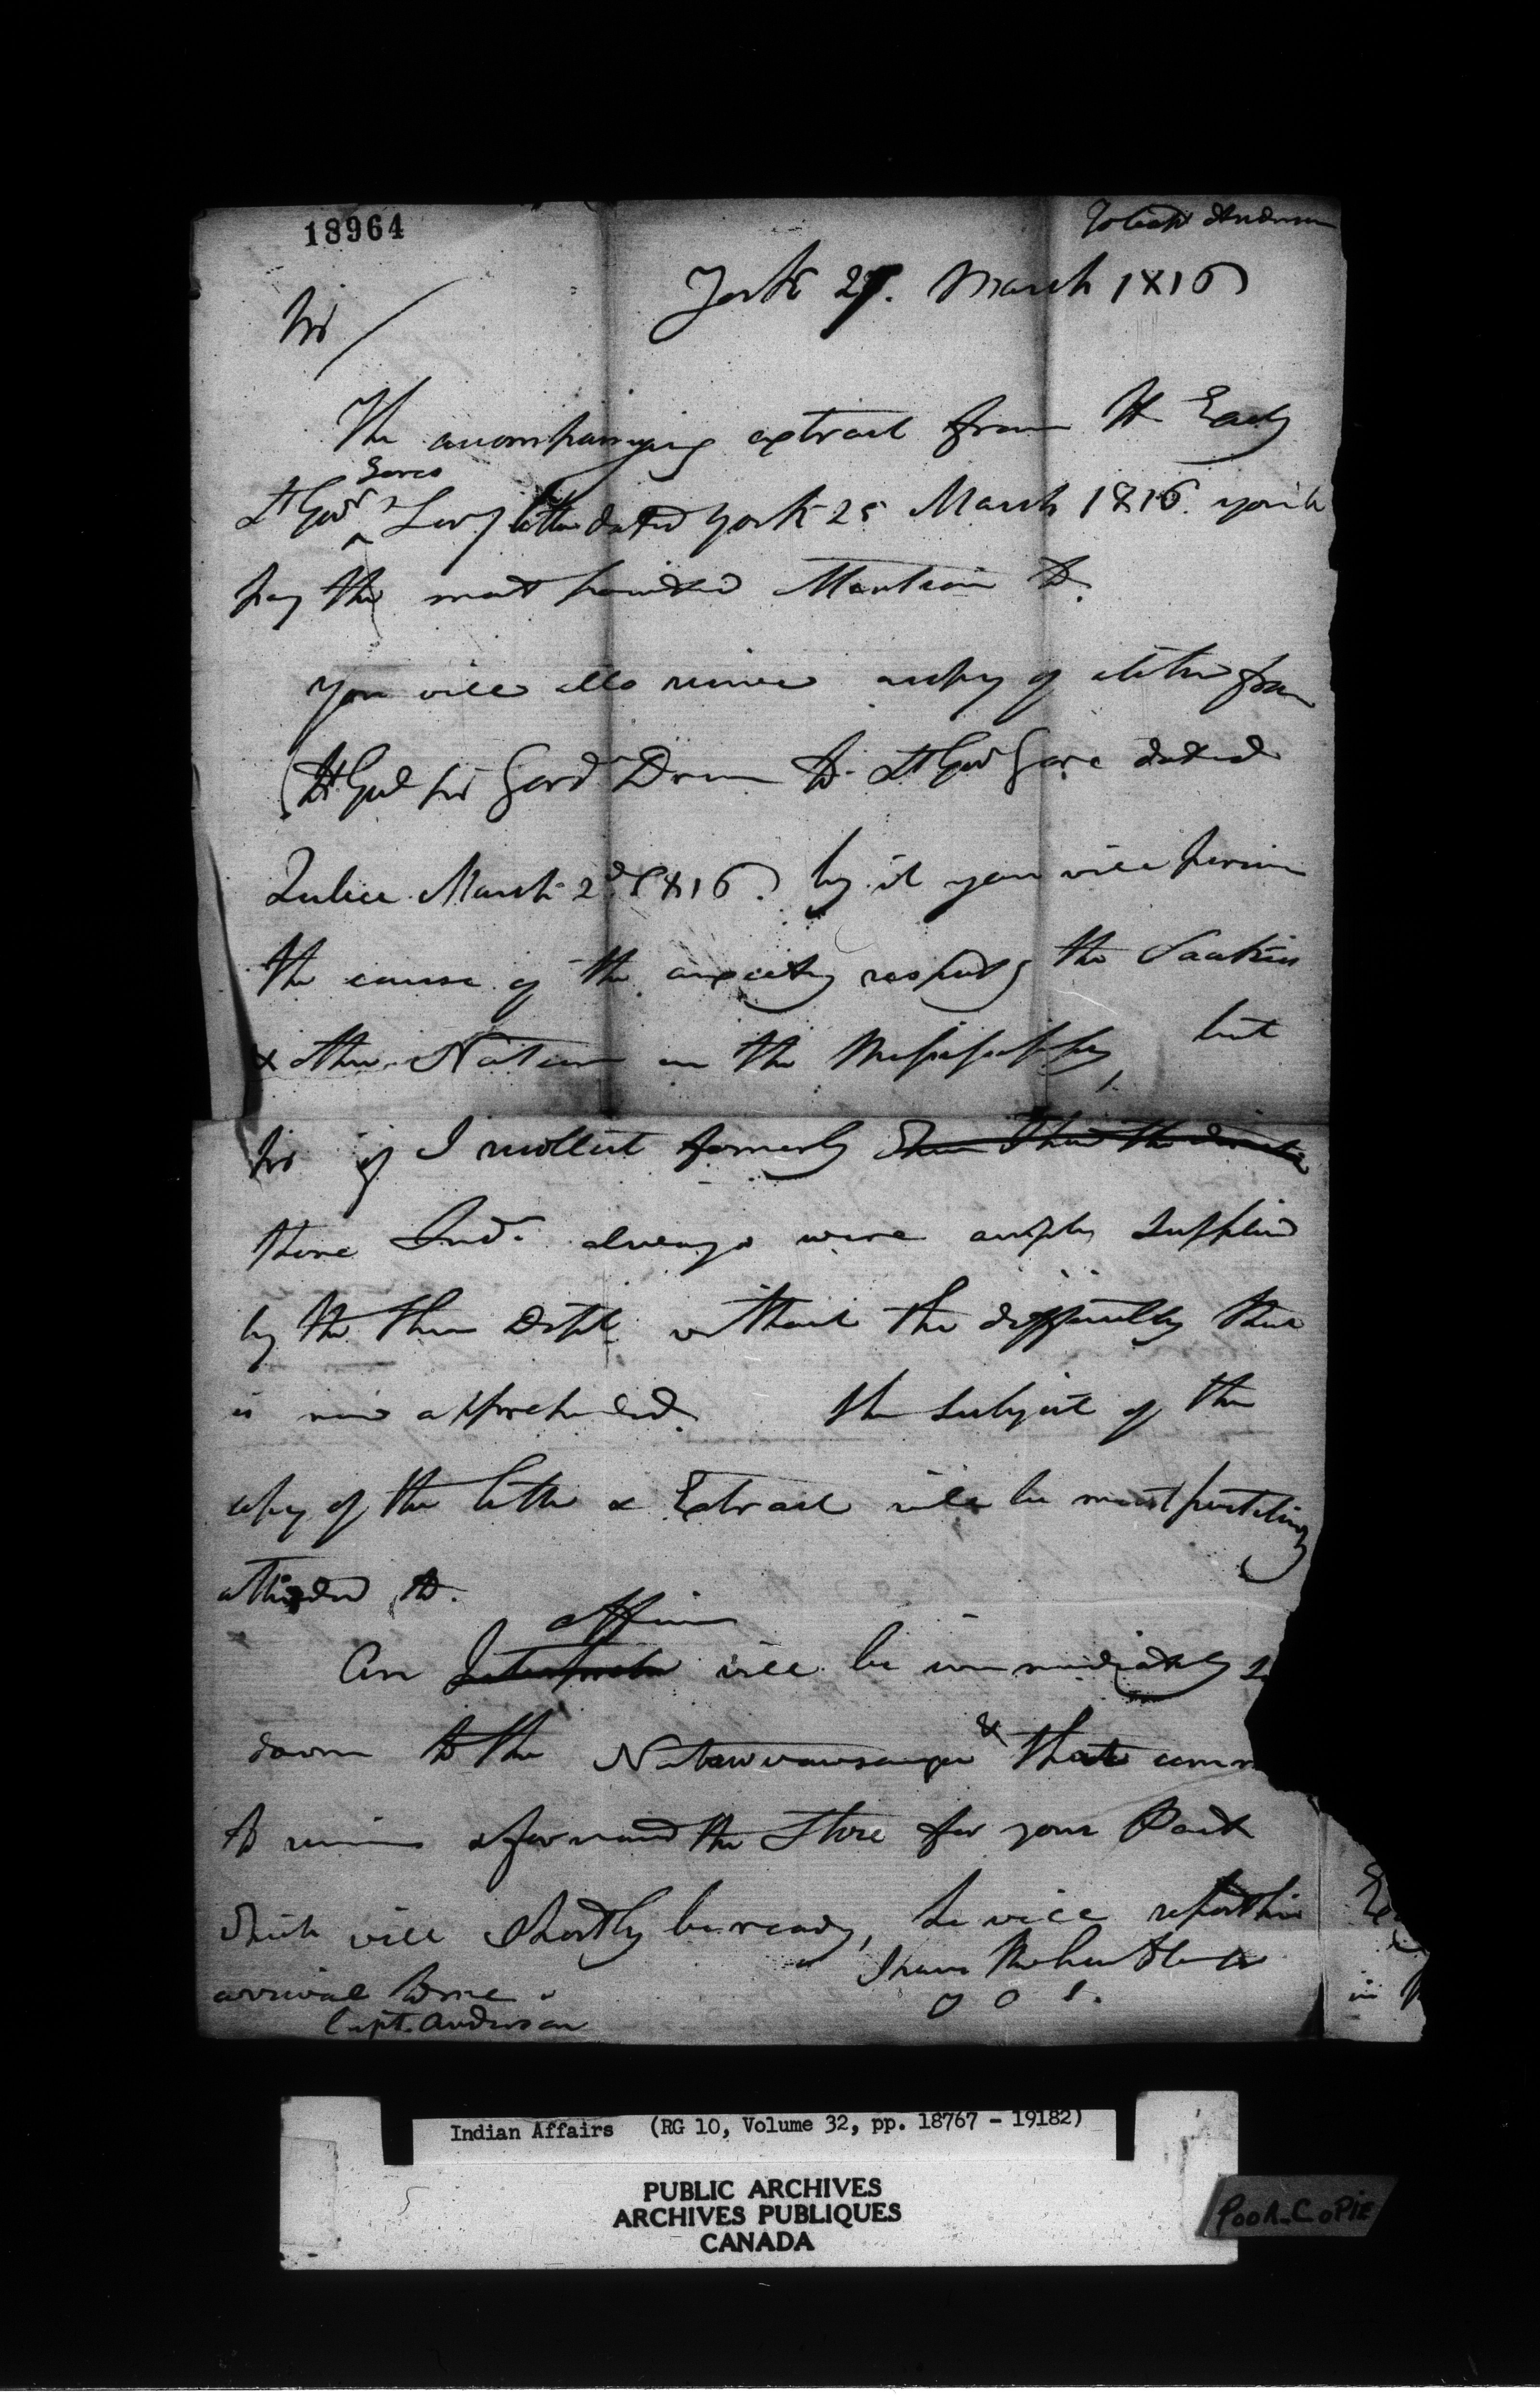 18964
To Capt Anderson
York 27. March 1816
Sir
The accompanying extract from H Excy
Gores
Lt Govr Secy letter dated York 25 March 1816. you'll
pay the most pointed attention to.
You will also receive a copy of a letter from
Lt Genl Sir Gord Drum to Lt Govr Gore dated
Quebec March 2d 1816. by it you will perceive
the cause of the anxiety respectg the Saakies
& other Nations on the Mississippy, but
Sir if I recollect formerly
those Inds. always were amply supplied
by the Ind Dept without the difficulty that
is now apprehended. the subject of the
copy of the letter & Extract will be most punctually
attended to.
officer
An Interpreter will be immediately
down to the Natawwawsauga & that
to receive & forward the Store for your Post
which will shortly be ready, he will report his
I have the honor to be
arrival to me
Capt. Anderson
in
Indian Affairs (RG 10, Volume 32, pp. 18767 - 19182)
PUBLIC ARCHIVES
ARCHIVES PUBLIQUES
CANADA
POOR_COPIE